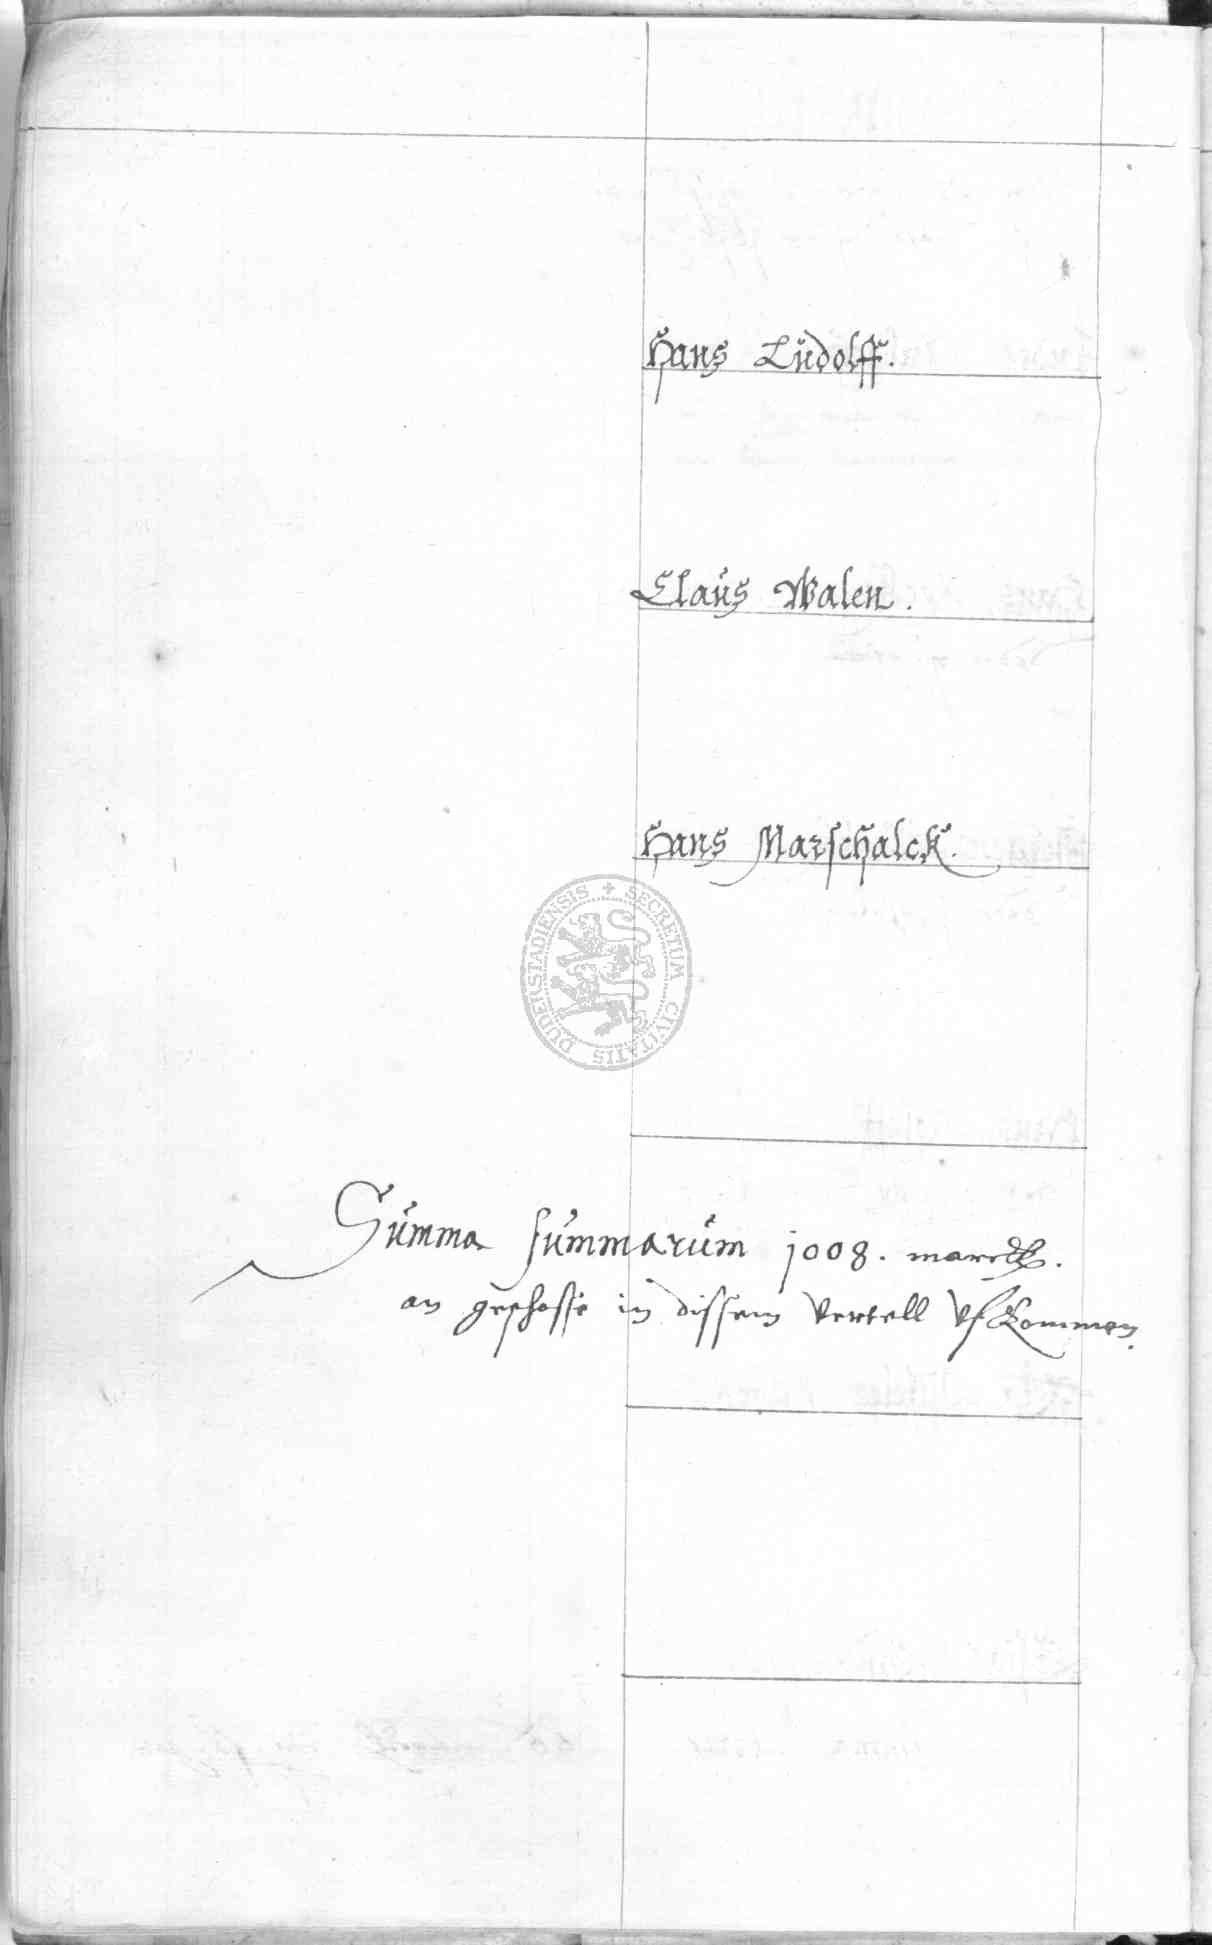 Hans Lüdolff.
Claüs Walen.
Hans Marschalck.
SECRETUM CIVITATIS DUDERSTADIENSIS
Sümma sümmarüm 1008. marck.
an geschosse in dissem vertell vfkommen.